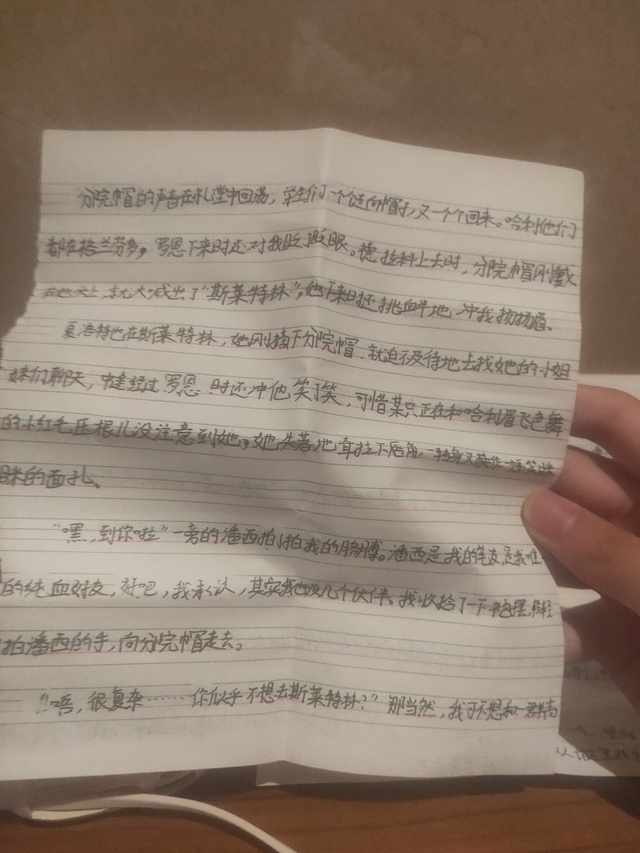 分院帽的声音在礼堂中回荡，学生们一个个走向帽子，又一个个回来。哈利他们
都在格兰芬多，罗恩下来时还对我眨了眨眼。德拉科上去时，分院帽刚戴
在他头上，就大喊出了“斯莱特林”，他下来时还挑衅地冲我扬扬眉。
夏洛特也在斯莱特林，她刚摘下分院帽，就迫不及待地去找她的小姐
妹们聊天，中途经过罗恩时还冲他笑了笑，可惜某只正在和哈利眉飞色舞
的小红毛压根儿没注意到她，她失落地耷拉下后角，一转身又
的面孔、
“嘿，到你啦”一旁的潘西拍拍我的胳膊。潘西是我的笔友，是我唯
的纯血好友，好吧，我承认，其实我也没几个伙伴。我收拾了一下
拍潘西的手，向分院帽走去。
“唔，很复杂……你似乎不想去斯莱特林？”那当然，我可不想和一群